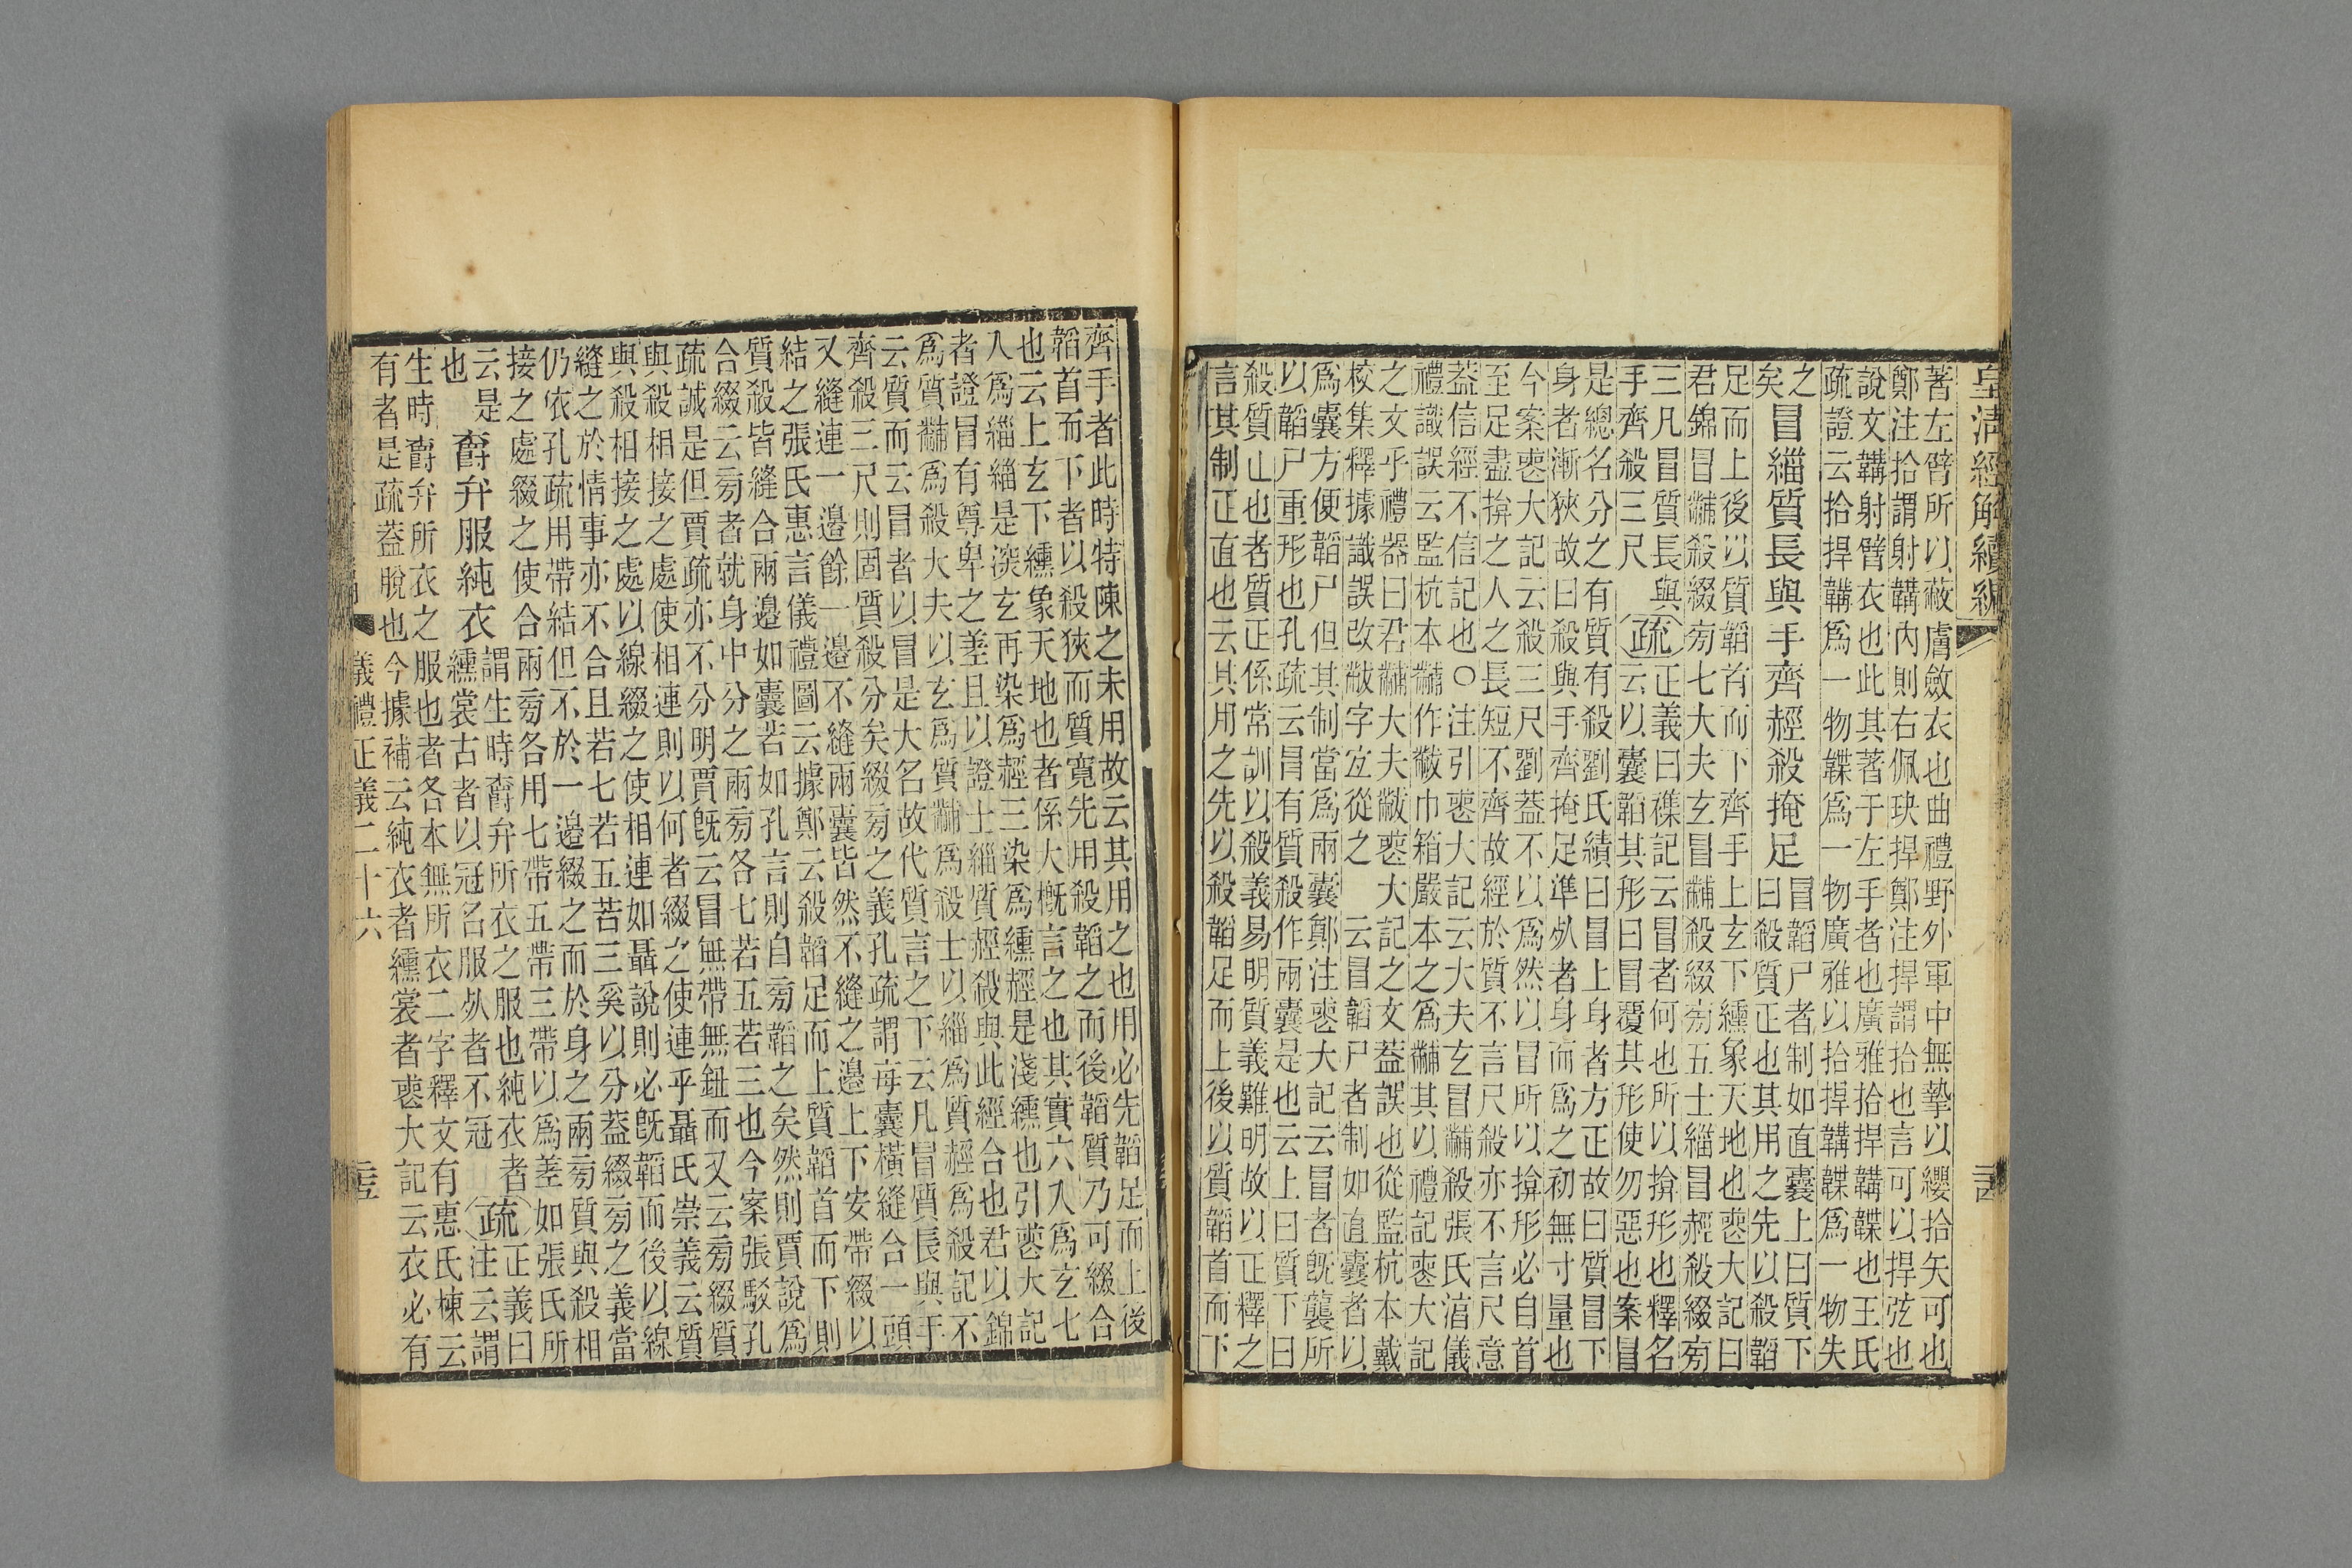 皇清經解續編
著左臂所以蔽膚斂衣也曲禮野外軍中無摯以纓拾矢可也
鄭注拾謂射韝內則右佩玦捍鄭注捍謂拾也言可以捍弦也
說文韝射臂衣也此其著于左手者也廣雅拾捍韝韘也王氏
疏證云拾捍韝爲一物韘爲一物廣雅以拾捍韝韘爲一物失
之
矣冒緇質長與手齊經殺掩足冒韜尸者制如直囊上曰質下
曰殺質正也其用之先以殺韜
足而上後以質韜首而下齊手上玄下纁象天地也喪大記曰
君錦冒黼殺綴旁七大夫玄冒黼殺綴旁五士緇冒赬殺綴旁
三凡冒質長與
手齊殺三尺疏正義曰襍記云冒者何也所以揜形也釋名
云以囊韜其形曰冒覆其形使勿惡也案冒
是總名分之有質有殺劉氏績曰冒上身者方正故曰質冒下
身者漸狹故曰殺與手齊掩足準㸦者身而爲之初無寸量也
今案喪大記云殺三尺劉蓋不以爲然以冒所以揜形必自首
至足盡揜之人之長短不齊故經於質不言尺殺亦不言尺意
蓋信經不信記也〇注引喪大記云大夫玄冒黼殺張氏淳儀
禮識誤云監杭本黼作黻巾箱嚴本之爲黼其以禮記喪大記
之文乎禮器曰君黼大夫黻喪大記之文蓋誤也從監杭本戴
校集釋據識誤改黻字宜從之 云冒韜尸者制如直囊者以
爲囊方便韜尸但其制當爲兩囊鄭注喪大記云冒者旣襲所
以韜尸重形也孔疏云冒有質殺作兩囊是也云上曰質下曰
殺質山也者質正係常訓以殺義易明質義難明故以正釋之
言其制正直也云其用之先以殺韜足而上後以質韜首而下
齊手者此時特陳之未用故云其用之也用必先韜足而上後
韜首而下者以殺狹而質寬先用殺韜之而後韜質乃可綴合
也云上玄下纁象天地也者係大概言之也其實六入爲玄七
入爲緇緇是深玄再染爲赬三染爲纁赬是淺纁也引喪大記
者證冒有尊卑之差且以證士緇質赬殺與此經合也君以錦
爲質黼爲殺大夫以玄爲質黼爲殺士以緇爲質赬爲殺記不
云質而云冒者以冒是大名故代質言之下云凡冒質長與手
齊殺三尺則固質殺分矣綴旁之義孔疏謂每囊橫縫合一頭
又縫連一邊餘一邊不縫兩囊皆然不縫之邊上下安帶綴以
結之張氏惠言儀禮圖云據鄭云殺韜足而上質韜首而下則
質殺皆縫合兩邊如囊若如孔言則自旁韜之矣然則賈說爲
合綴云旁者就身中分之兩旁各七若五若三也今案張駁孔
疏誠是但賈疏亦不分明賈旣云冒無帶無鈕而又云旁綴質
與殺相接之處使相連則以何者綴之使連乎聶氏崇義云質
與殺相接之處以線綴之使相連如聶說則必旣韜而後以線
縫之於情事亦不合且若七若五若三奚以分蓋綴旁之義當
仍依孔疏用帶結但不於一邊綴之而於身之兩旁質與殺相
接之處綴之使合兩旁各用七帶五帶三帶以爲差如張氏所
云是
也爵弁服純衣謂生時爵弁所衣之服也純衣者
纁裳古者以冠名服㸦者不冠疏正義曰
注云謂
生時爵弁所衣之服也者各本無所衣二字釋文有惠氏棟云
有者是疏蓋脫也今據補云純衣者纁裳者喪大記云衣必有
儀禮正義二十六